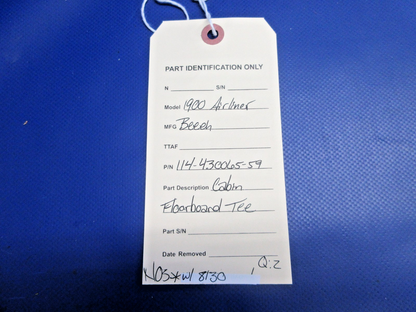 PART IDENTIFICATION ONLY
N S/N
Model 1900 Airliner
MFG Beech
TTAF
P/N 114-430065-59
Part Description Cabin
Floorboard Tee
Part S/N
Date Removed
NOS* w/ 8130 , Q:2